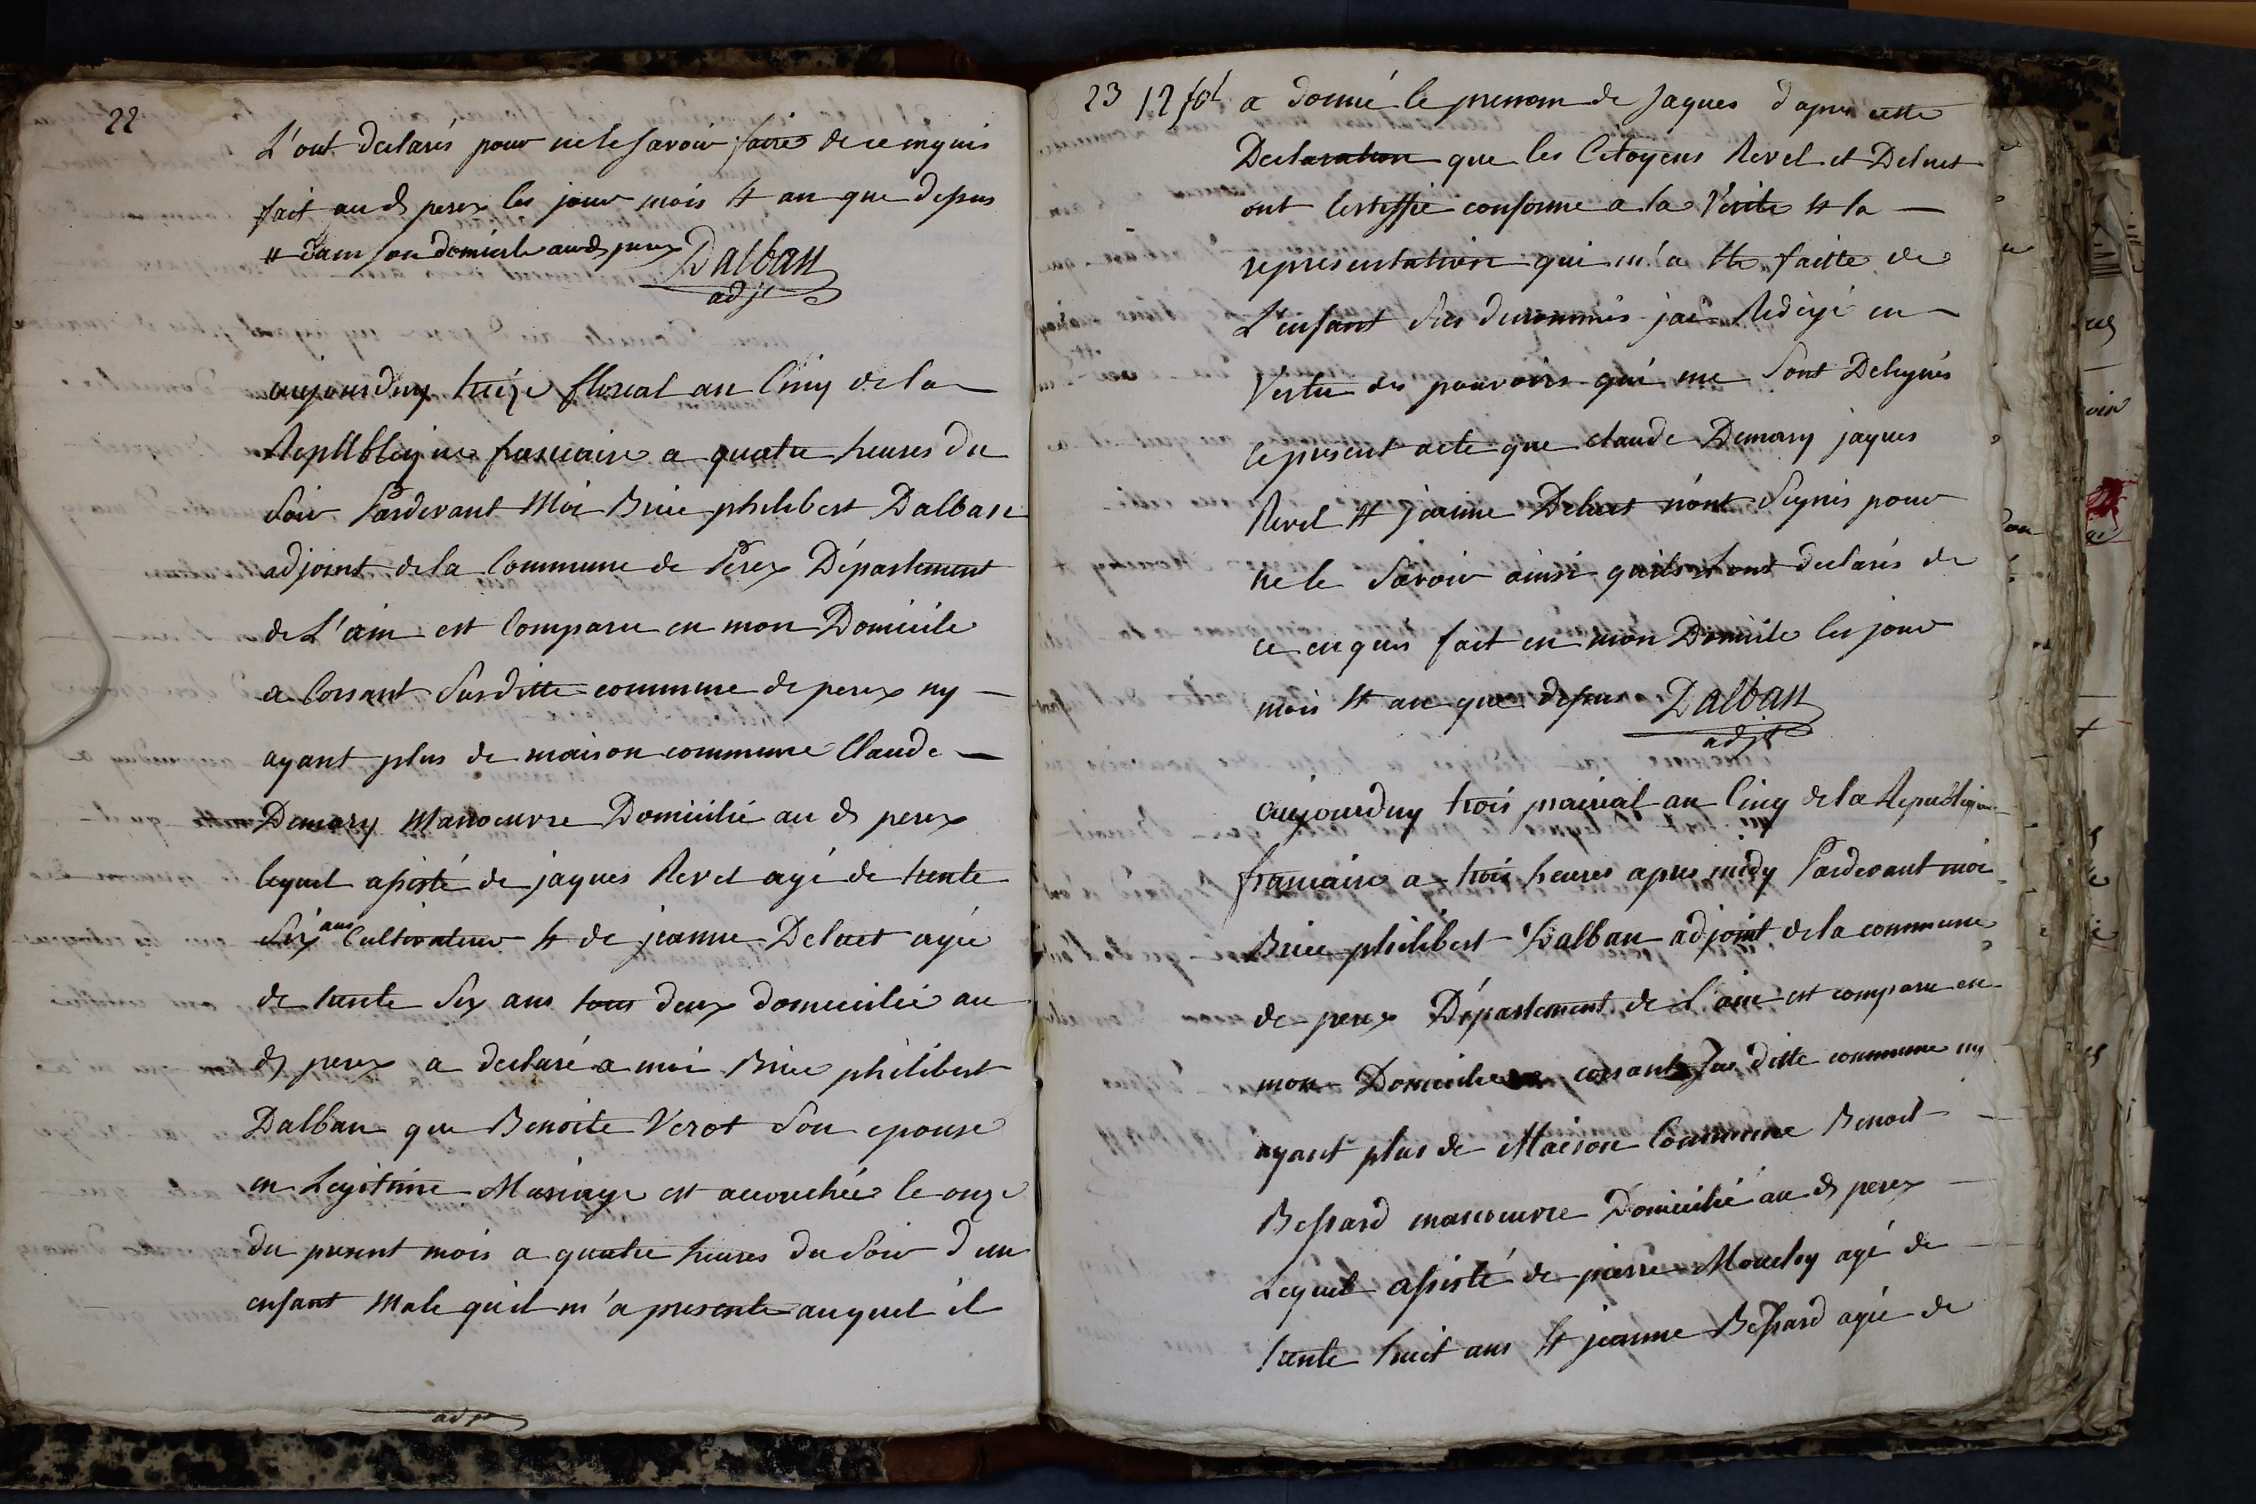 22
L'ont declarés pour ne le savoir faire de ce enquis
fait au d perex les jour mois et an que dessus
et dans son domicile aud perex Dalban
adjt
aujourduy treize floreal an Cinq de la
Republlique francaise a quatre heures du
Soir Pardevant Moi Brice philibert Dalban
adjoint de la Commune de Perex Département
de L'ain est Comparu en mon Domicile
a Corsant Susditte commune de perex ny
ayant plus de maison commune Claude
Demary Manoeuvre Domicilié au d perex
lequel assisté de jaques Revel agé de trente
Six ans Cultivateur et de jeanne Deluet agée
de trente Six ans tous deux domicilié au
d perex a declaré a moi Brice philibert
Dalban que Benoite Verot Son epouse
en Legitime Mariage est accouchée le onze
du present mois a quatre heures du Soir d'un
enfant Male qu'il m'a presente auquel il
adjt
23 12 fol a donné le prenom de Jaques d'apres cette
Declaration que les Citoyens Revel et Deluet
ont Certiffié conforme a la Verite et la
representation qui m'a ete faitte de
L'enfant Sus denommés jai Redigé en
Vertu des pouvoirs qui me Sont Delegués
le present acte que claude Demary jaques
Revel et jeanne Deluet n'ont Signés pour
ne le Savoir ainsi quils l'ont declarés de
ce enquis fait en mon Domicile les jour
mois et an que dessus Dalban
adjt
aujourduy trois prairial an Cinq de la Republique
francaise a trois heures apres midy Pardevant moi
Brice philibert Dalban adjoint de la commune
de perex Département de L'ain est comparu en
mon Domicile corsant Sus ditte commune ny
ayant plus de Maison Commune Benoit
Bessard manoeuvre Domicilié au d perex
Lequel assisté de pierre Mouchy agé de
trente huit ans et jeanne Bessard agée de